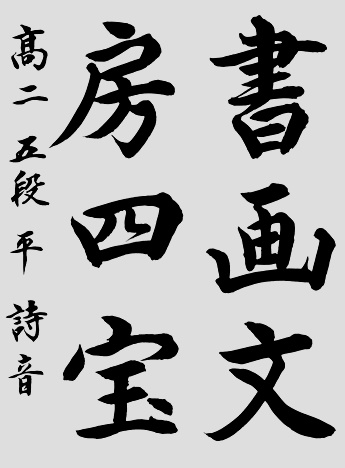 書画文
房四宝
高二 五段 平 詩音